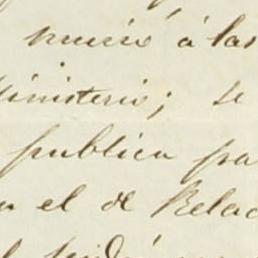 nunció á las
Ministerio; se
publica pa
n el de Relac